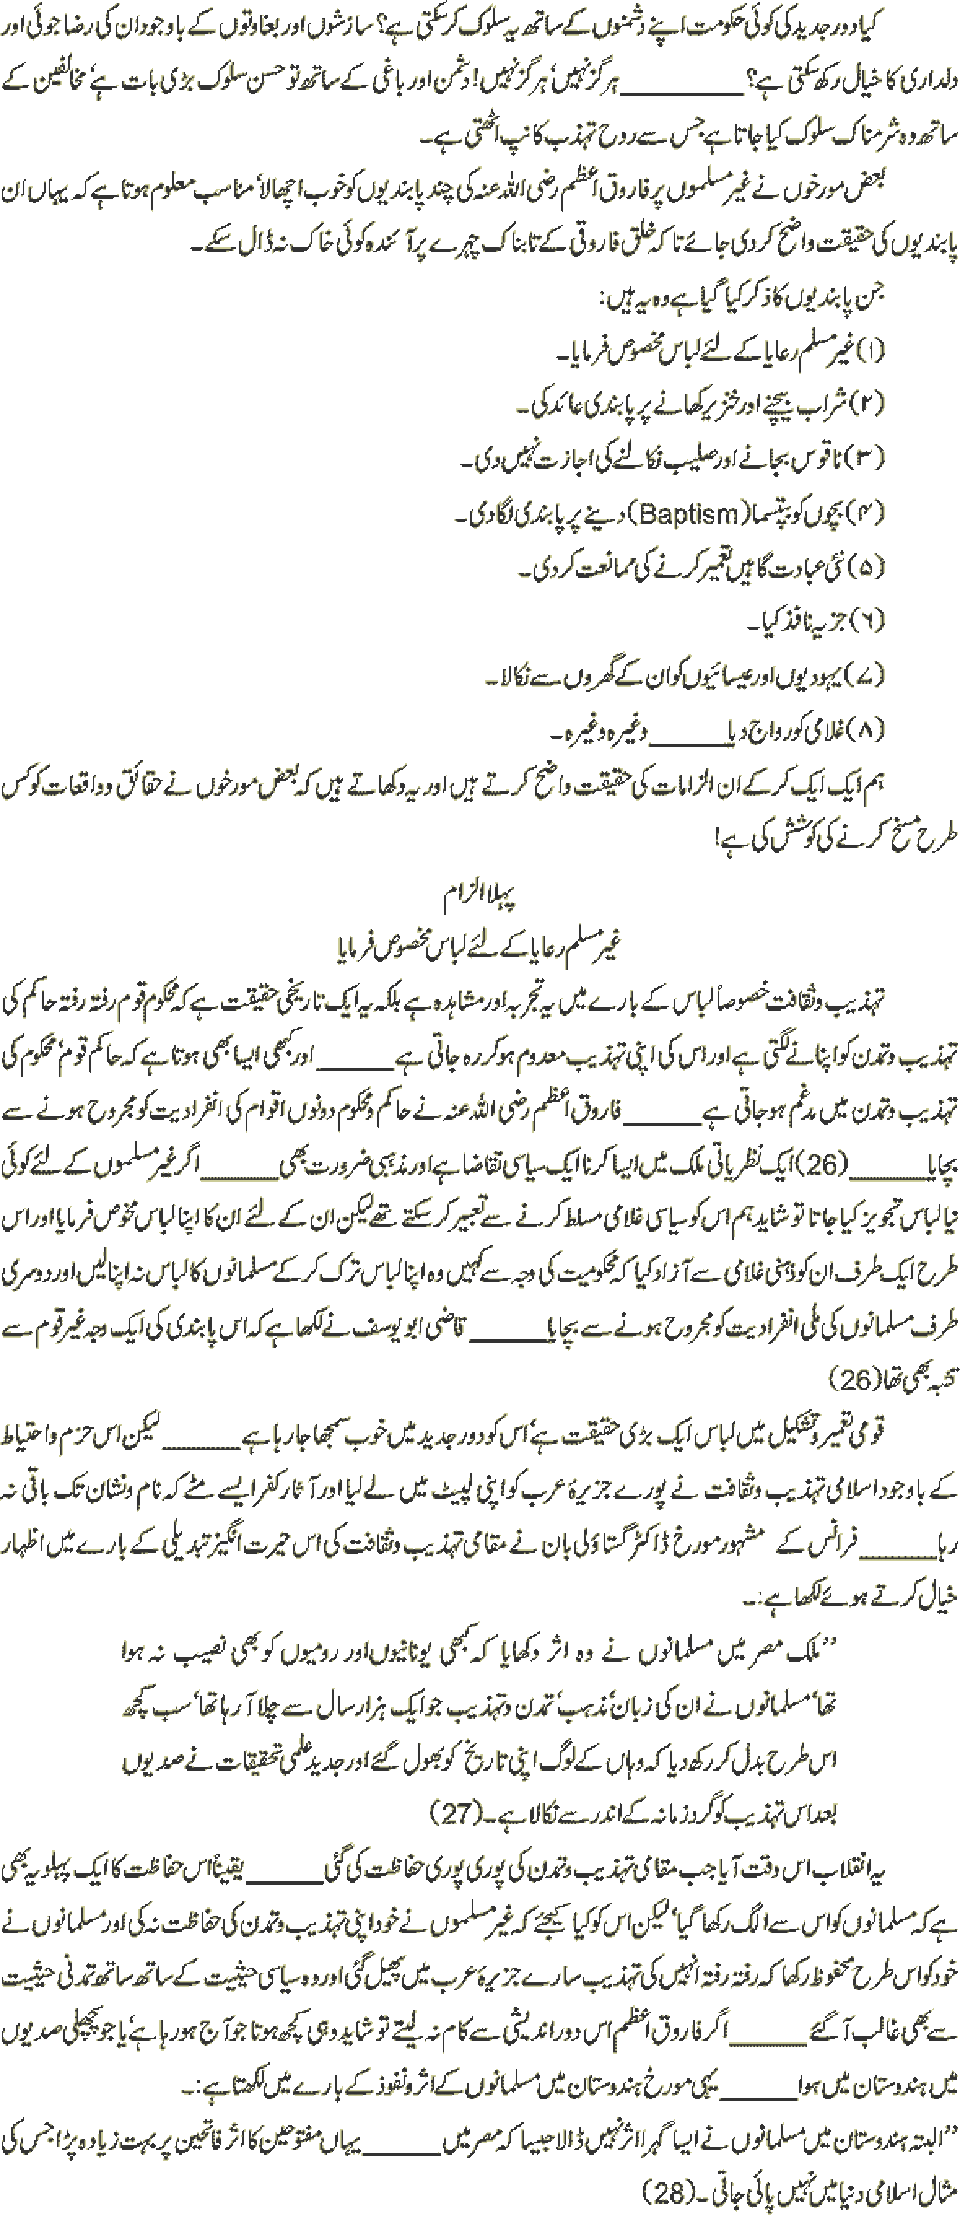 کیا دور جدید کی کوئی حکومت اپنے دشمنوں کے ساتھ یہ سلوک کرسکتی ہے؟ سازشوں اور بغاوتوں کے باوجود ان کی رضا جوئی اور
دلداری کا خیال رکھ سکتی ہے؟ ________ ہرگز نہیں‘ ہرگز نہیں! دشمن اور باغی کے ساتھ تو حسن سلوک بڑی بات ہے‘ مخالفین کے
ساتھ وہ شرمناک سلوک کیا جاتا ہے جس سے روح تہذب کانپ اٹھتی ہے۔
بعض مورخوں نے غیر مسلموں پر فاروق اعظم رضی اللہ عنہ کی چند پابندیوں کو خوب اچھالا‘ مناسب معلوم ہوتا ہے کہ یہاں ان
پابندیوں کی حقیقت واضح کردی جائے تاکہ خلق فاروقی کے تابناک چہرے پر آئندہ کوئی خاک نہ ڈال سکے۔
جن پابندیوں کا ذکر کیا گیا ہے وہ یہ ہیں:
(۱) غیر مسلم رعایا کے لئے لباس مخصوص فرمایا۔
(۲) شراب بیچنے اور خنزیر کھانے پر پابندی عائد کی۔
(۳) ناقوس بجانے اور صلیب نکالنے کی اجازت نہیں دی۔
(۴) بچوں کو بپتسما (Baptism) دینے پر پابندی لگادی۔
(۵) نئی عبادت گاہیں تعمیر کرنے کی ممانعت کردی۔
(۶) جزیہ نافذ کیا۔
(۷) یہودیوں اور عیسائیوں کو ان کے گھروں سے نکالا۔
(۸) غلامی کو رواج دیا ______ وغیرہ وغیرہ۔
ہم ایک ایک کرکے ان الزامات کی حقیقت واضح کرتے ہیں اور یہ دکھاتے ہیں کہ بعض مورخوں نے حقائق و واقعات کو کس
طرح مسخ کرنے کی کوشش کی ہے!
پہلا الزام
غیر مسلم رعایا کے لئے لباس مخصوص فرمایا
تہذیب و ثقافت خصوصاً لباس کے بارے میں یہ تجربہ اور مشاہدہ ہے بلکہ یہ ایک تاریخی حقیقت ہے کہ محکوم قوم رفتہ رفتہ حاکم کی
تہذیب و تمدن کو اپنانے لگتی ہے اور اس کی اپنی تہذیب معدوم ہوکر رہ جاتی ہے ______ اور کبھی ایسا بھی ہوتا ہے کہ حاکم قوم‘ محکوم کی
تہذیب و تمدن میں مدغم ہوجاتی ہے ______ فاروق اعظم رضی اللہ عنہ نے حاکم و محکوم دونوں اقوام کی انفرادیت کو مجروح ہونے سے
بچایا ______ (26) ایک نظریاتی ملک میں ایسا کرنا ایک سیاسی تقاضا ہے اور مذہبی ضرورت بھی ______ اگر غیر مسلموں کے لئے کوئی
نیا لباس تجویز کیا جاتا تو شاید ہم اس کو سیاسی غلامی مسلط کرنے سے تعبیر کرسکتے تھے لیکن ان کے لئے ان کا اپنا لباس مخوص فرمایا اور اس
طرح ایک طرف ان کو ذہنی غلامی سے آزاد کیا کہ محکومیت کی وجہ سے کہیں وہ اپنا لباس ترک کرکے مسلمانوں کا لباس نہ اپنا لیں اور دوسری
طرف مسلمانوں کی ملی انفرادیت کو مجروح ہونے سے بچایا ______ قاضی ابو یوسف نے لکھا ہے کہ اس پابندی کی ایک وجہ غیر قوم سے
تشبہ بھی تھا (26)
قومی تعمیر و تشکیل میں لباس ایک بڑی حقیقت ہے‘ اس کو دور جدید میں خوب سمجھا جارہا ہے ______ لیکن اس حزم و احتیاط
کے باوجود اسلامی تہذیب و ثقافت نے پورے جزیرۂ عرب کو اپنی لپیٹ میں لے لیا اور آثار کفر ایسے مٹے کہ نام و نشان تک باقی نہ
رہا ______ فرانس کے مشہور مورخ ڈاکٹر گستاؤلی بان نے مقامی تہذیب و ثقافت کی اس حیرت انگیز تبدیلی کے بارے میں اظہار
خیال کرتے ہوئے لکھا ہے:۔
”ملک مصر میں مسلمانوں نے وہ اثر دکھایا کہ کبھی یونانیوں اور رومیوں کو بھی نصیب نہ ہوا
تھا‘ مسلمانوں نے ان کی زبان‘ مذہب‘ تمدن و تہذیب جو ایک ہزار سال سے چلا آرہا تھا‘ سب کچھ
اس طرح بدل کر رکھ دیا کہ وہاں کے لوگ اپنی تاریخ کو بھول گئے اور جدید علمی تحقیقات نے صدیوں
بعد اس تہذیب کو گرد زمانہ کے اندر سے نکالا ہے۔(27)
یہ انقلاب اس وقت آیا جب مقامی تہذیب و تمدن کی پوری پوری حفاظت کی گئی ______ یقیناً اس حفاظت کا ایک پہلو یہ بھی
ہے کہ مسلمانوں کو اس سے الگ رکھا گیا‘ لیکن اس کو کیا کیجئے کہ غیر مسلموں نے خود اپنی تہذیب و تمدن کی حفاظت نہ کی اور مسلمانوں نے
خود کو اس طرح محفوظ رکھا کہ رفتہ رفتہ انہیں کی تہذیب سارے جزیرۂ عرب میں پھیل گئی اور وہ سیاسی حیثیت کے ساتھ ساتھ تمدنی حیثیت
سے بھی غالب آگئے ______ اگر فاروق اعظم اس دور اندیشی سے کام نہ لیتے تو شاید وہی کچھ ہوتا جو آج ہورہا ہے‘ یا جو پچھلی صدیوں
میں ہندوستان میں ہوا ______ یہی مورخ ہندوستان میں مسلمانوں کے اثر و نفوذ کے بارے میں لکھتا ہے:۔
”البتہ ہندوستان میں مسلمانوں نے ایسا گہرا اثر نہیں ڈالا جیسا کہ مصر میں ______ یہاں مفتوحین کا اثر فاتحین پر بہت زیادہ پڑا جس کی
مثال اسلامی دنیا میں نہیں پائی جاتی۔(28)